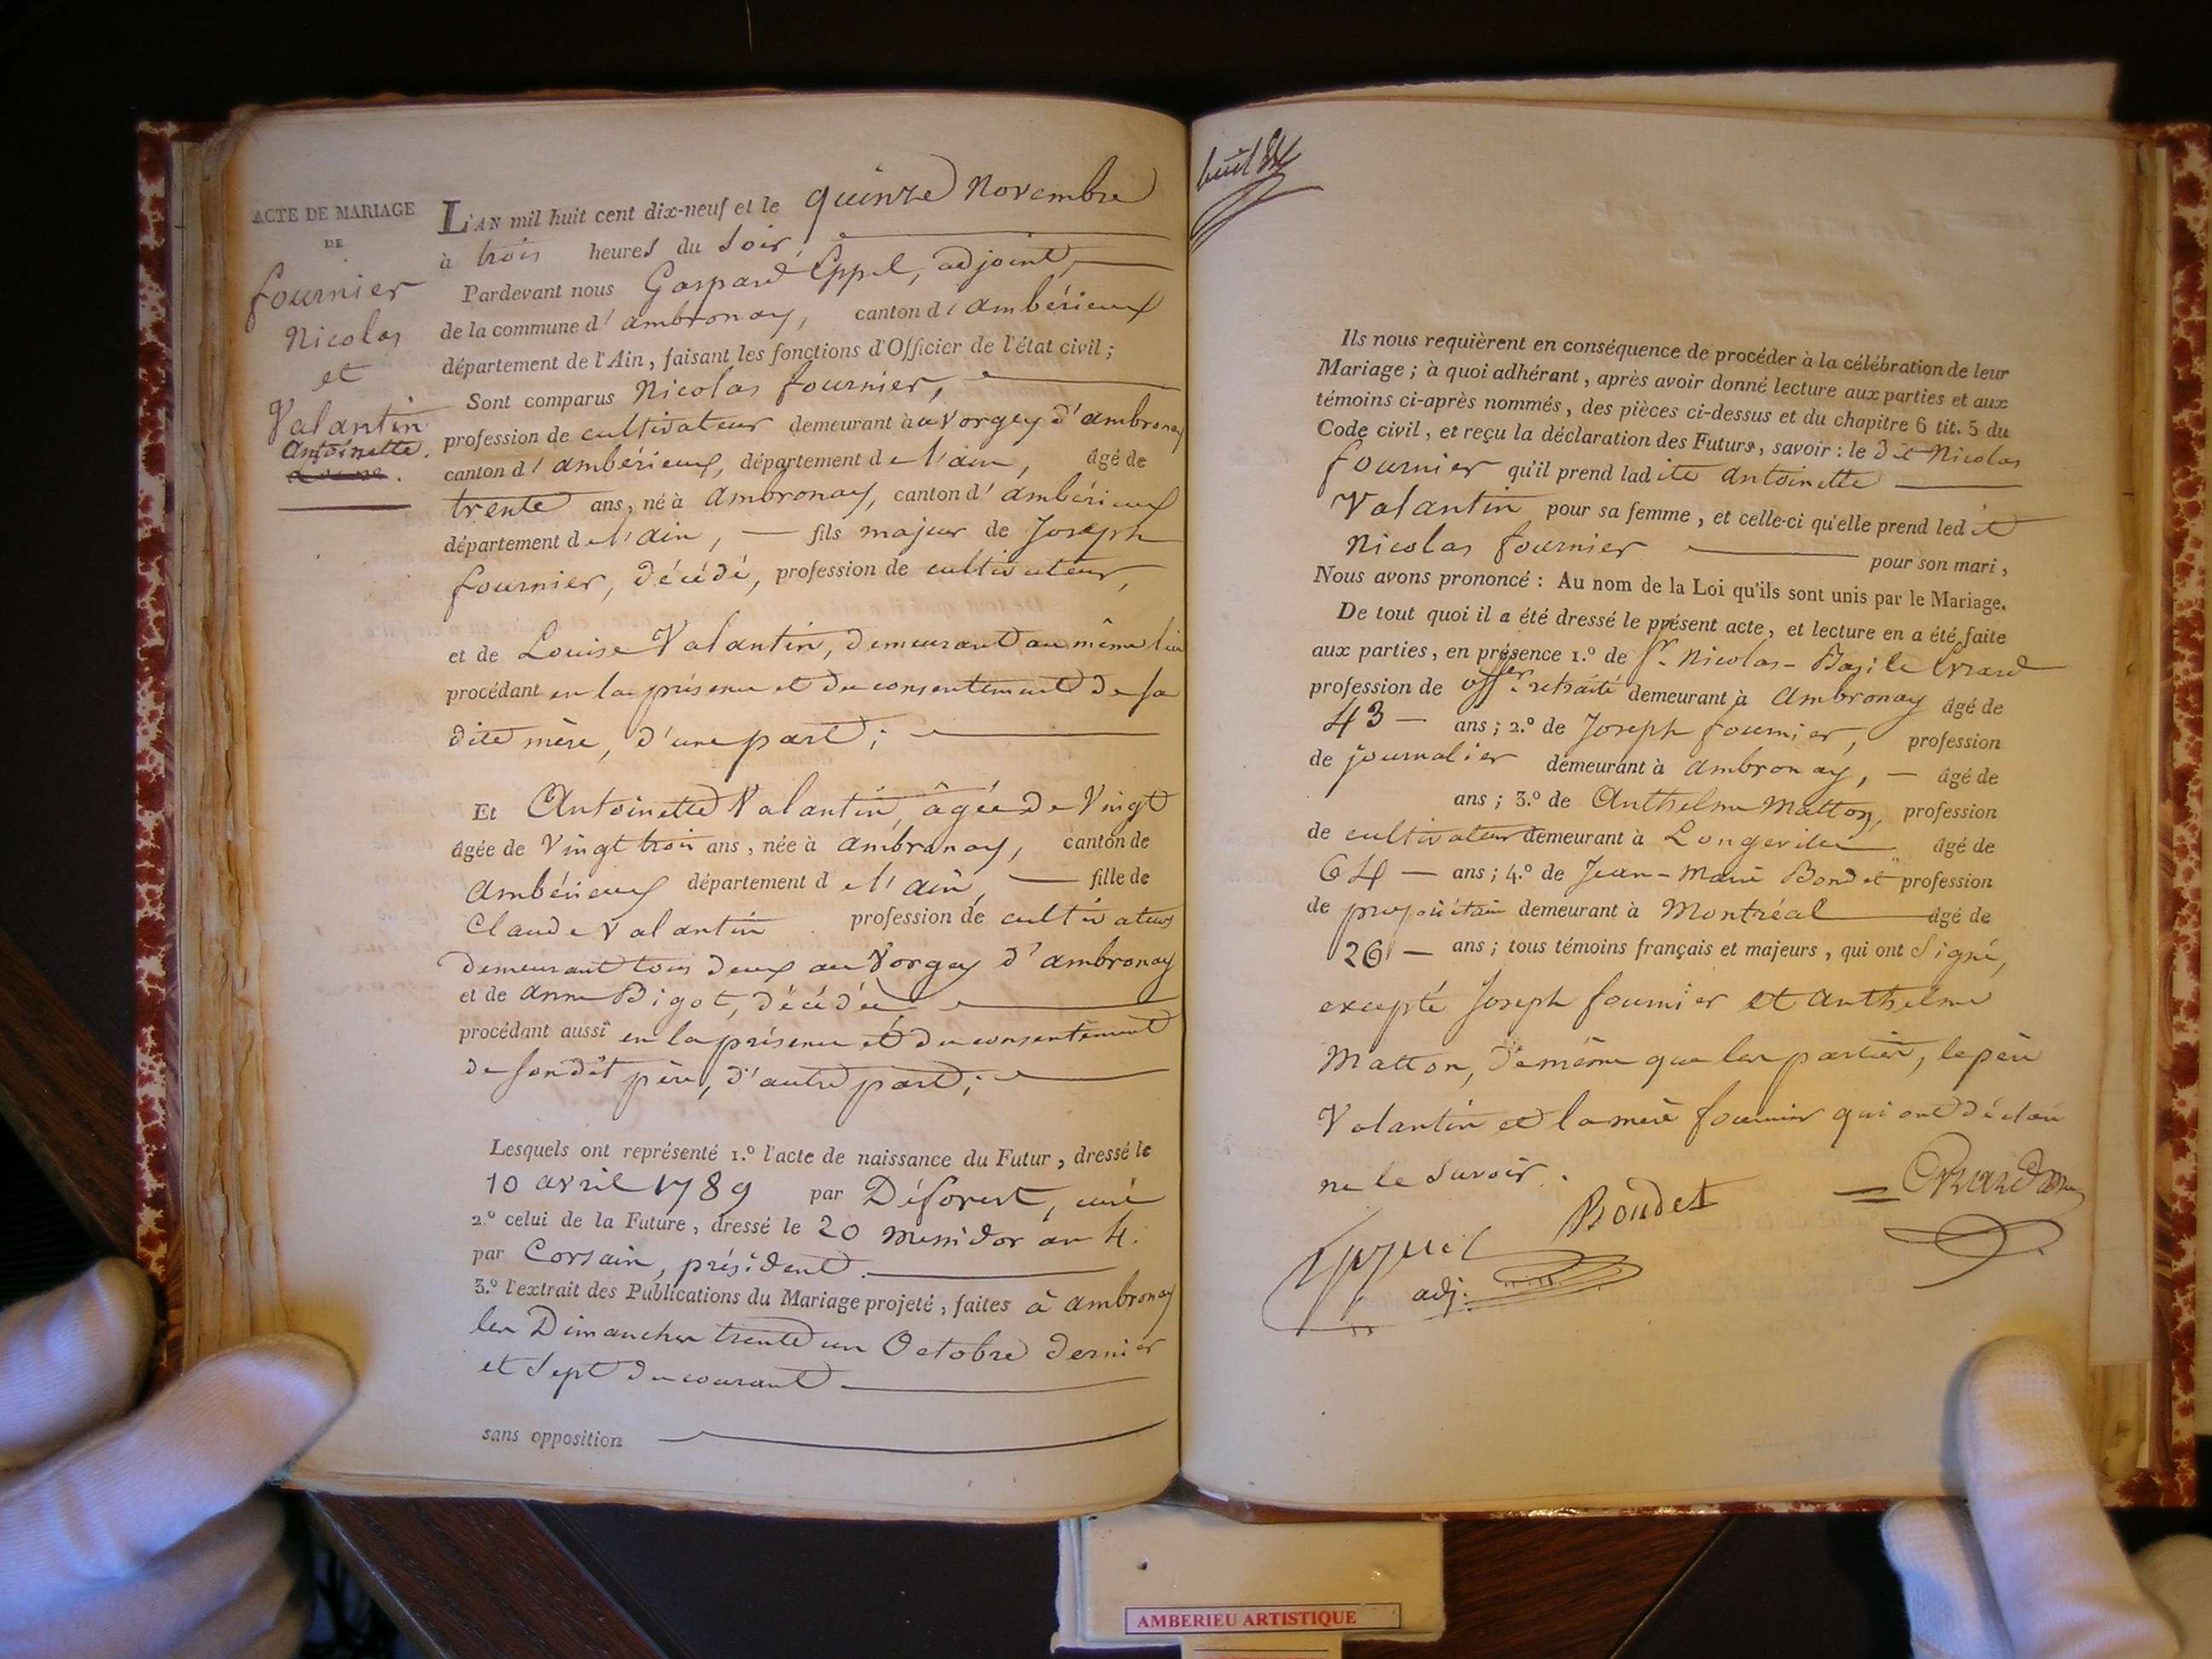 ACTE DE MARIAGE
DE
fournier
Nicolas
et
Valantin
Antoinette.
L'AN mil huit cent dix-neuf et le quinze Novembre
à trois heures du soir,
Pardevant nous Gaspard Eppel, adjoint
de la commune d'ambronay, canton d'ambérieux
département de l'Ain, faisant les fonctions d'Officier de l'état civil;
Sont comparus Nicolas fournier,
profession de cultivateur demeurant à au Vorgey d'ambronay
canton d'ambérieux, département de l'ain, âgé de
trente ans, né à Ambronay, canton d'ambérieux
département de l'ain, — fils majeur de Joseph
fournier, décédé, profession de cultivateur,
et de Louise Valantin, demeurant au même lieu
procédant en la présence et du consentement de sa
dite mère, d'une part;
Et Antoinette Valantin, âgée de Vingt
âgée de Vingt trois ans, née à ambronay, canton de
Ambérieux département de l'ain, — fille de
Claude Valantin profession de cultivateur
demeurant tous deux au Vorgey d'ambronay
et de anne Bigot, décédée
procédant aussi en la présence et du consentement
de son dit père, d'autre part;
Lesquels ont représenté 1.º l'acte de naissance du Futur, dressé le
10 avril 1789 par Déforest, curé
2.º celui de la Future, dressé le 20 messidor an 4.
par Corsain, président.
3.º l'extrait des Publications du Mariage projeté, faites à ambronay
les Dimanches trente un Octobre dernier
et sept du courant
sans opposition
huit
Ils nous requièrent en conséquence de procéder à la célébration de leur
Mariage; à quoi adhérant, après avoir donné lecture aux parties et aux
témoins ci-après nommés, des pièces ci-dessus et du chapitre 6 tit. 5 du
Code civil, et reçu la déclaration des Futurs, savoir: le dit Nicolas
fournier qu'il prend ladite antoinette
Valantin pour sa femme, et celle-ci qu'elle prend ledit
Nicolas fournier pour son mari,
Nous avons prononcé: Au nom de la Loi qu'ils sont unis par le Mariage.
De tout quoi il a été dressé le présent acte, et lecture en a été faite
aux parties, en présence 1.º de Sr. Nicolas-Bazile Errard
profession de offer. retraité demeurant à Ambronay âgé de
43 — ans; 2.º de Joseph fournier, profession
de journalier demeurant à ambronay, — âgé de
ans; 3.º de Anthelme Matton, profession
de cultivateur demeurant à Longeville âgé de
64 — ans; 4.º de Jean-Marie Bondet profession
de propriétaire demeurant à Montréal âgé de
26 — ans; tous témoins français et majeurs, qui ont signé,
excepté Joseph fournier et Anthelme
Matton, de même que les parties, le père
Valantin et la mère fournier qui ont déclaré
ne le savoir.
Bondet
Eppel
adj.
AMBERIEU ARTISTIQUE